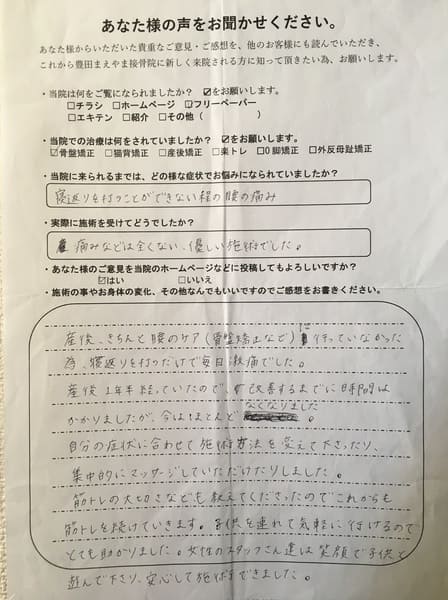 あなた様の声をお聞かせください。
あなた様からいただいた貴重なご意見・ご感想を、他のお客様にも読んでいただき、
これから豊田まえやま接骨院に新しく来院される方に知って頂きたい為、お願いします。
・当院は何をご覧になられましたか？ ☑をお願いします。
□チラシ □ホームページ ☑フリーペーパー
□エキテン □紹介 □その他（ ）
・当院での治療は何をされていましたか？ ☑をお願いします。
☑骨盤矯正 □猫背矯正 □産後矯正 □楽トレ □O脚矯正 □外反母趾矯正
・当院に来られるまでは、どの様な症状でお悩みになられていましたか？
寝返りを打つことができない程の腰の痛み
・実際に施術を受けてどうでしたか？
痛みなどは全くない、優しい施術でした。
・あなた様のご意見を当院のホームページなどに投稿してもよろしいですか？
☑はい □いいえ
・施術の事やお身体の変化、その他なんでもいいですのでご感想をお書きください。
産後、きちんと腰のケア（骨盤矯正など）に行っていなかった
為、寝返りを打つだけで毎日激痛でした。
産後1年半経っていたので、改善するまでに時間は
かかりましたが、今はほとんどなくなりました。
自分の症状に合わせて施術方法を変えて下さったり、
集中的にマッサージしていただけたりしました。
筋トレの大切さなども教えてくださったのでこれからも
筋トレを続けていきます。子供を連れて気軽に行けるので
とても助かりました。女性のスタッフさん達は笑顔で子供と
遊んで下さり、安心して施術できました。